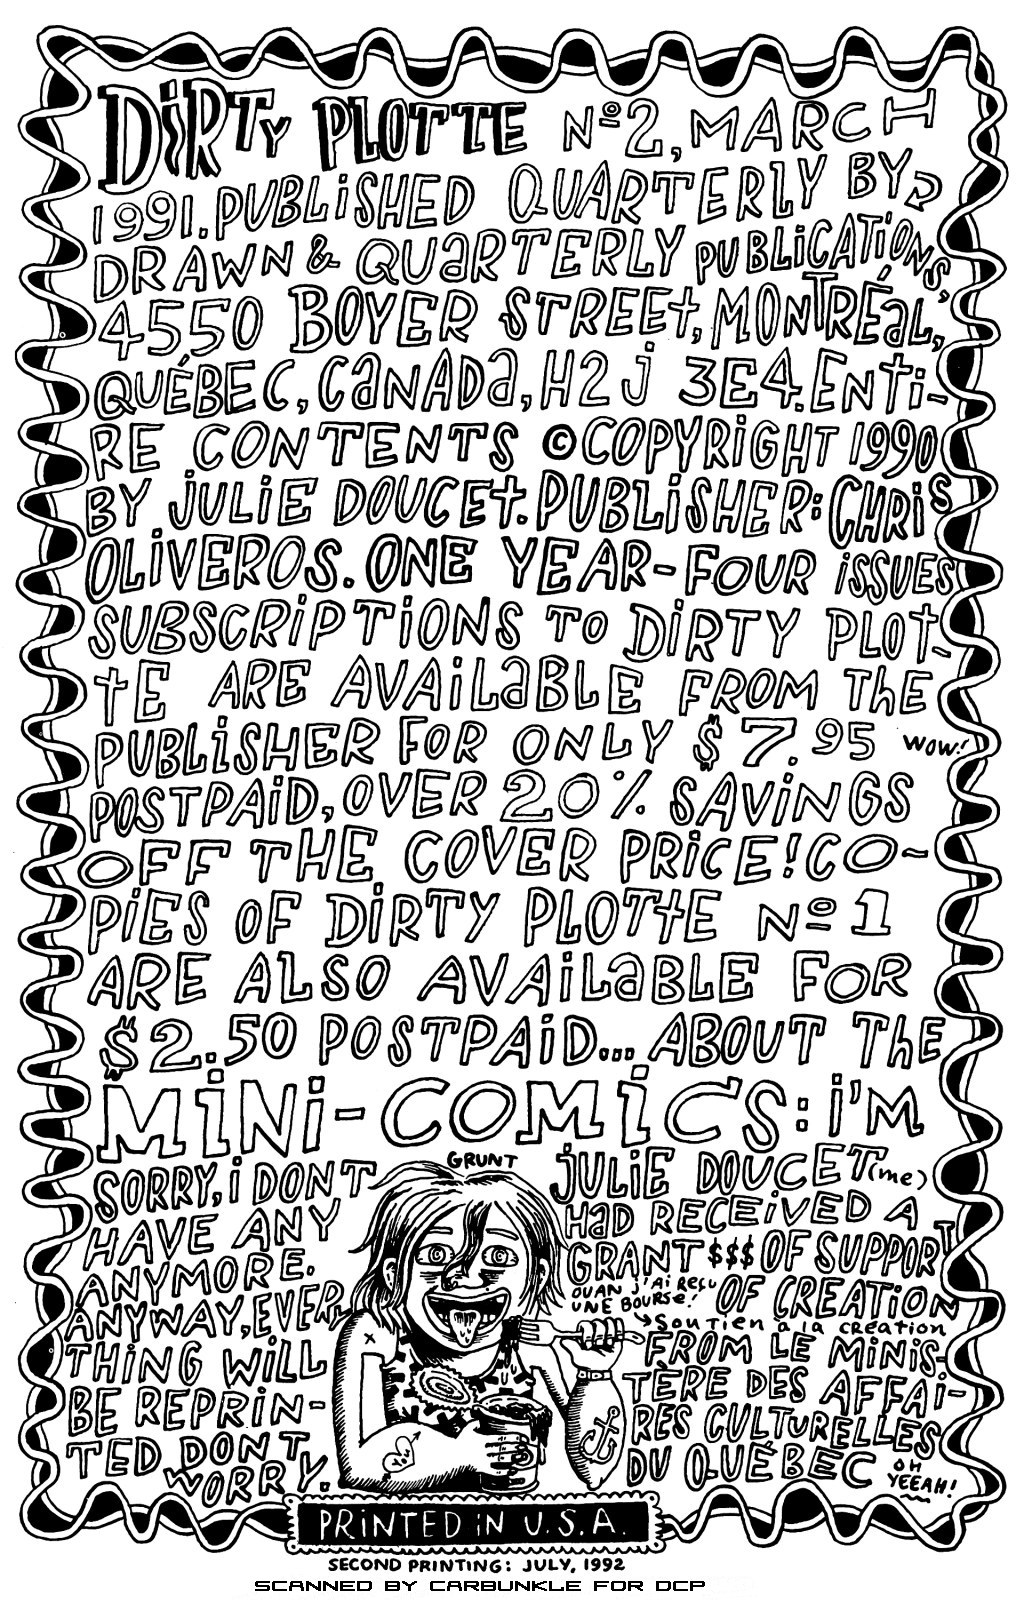 DiRTy PLOTTE Nº2, MARCH
1991. PUBLiSHED QUARTERLY BY
DRAWN & QUaRTERLY PUBLiCATiONS,
4550 BOYER STREEt, MONTRÉaL,
QUÉBEC, CaNADa, H2J 3E4. ENTi-
RE CONTENTS ©COPYRiGHT 1990
BY JULiE DOUCEt. PUBLiSHER: CHRiS
OLiVEROS. ONE YEAR-FOUR iSSUES
SUBSCRiPTiONS TO DiRTY PLOt-
tE ARE AVAiLaBLE FROM ThE
PUBLiSHER FOR ONLY $7.95 WOW!
POSTPAiD, OVER 20% SAViNGS
OFF THE COVER PRiCE! CO-
PiES OF DiRTY PLOTtE Nº1
ARE ALSO AVAiLaBLE FOR
$2.50 POSTPAiD... ABOUT ThE
MiNi-COMiCS: i'M
SORRY, i DON'T
HAVE ANY
ANYMORE.
ANYWAY, EVERY
THiNG WiLL
BE REPRiN-
TED DON'T
WORRY.
GRUNT
JULiE DOUCET (me)
HaD RECEiVED A
GRANT $$$ OF SUPPORT
OUAN J'Ai REÇU
UNE BOURSE!
OF CREATiON
Soutien à la création
FROM LE MiNiS-
TÈRE DES AFFAi-
RES CULTURELLES
DU QUÉBEC
OH
YEEAH!
PRiNTED iN U.S.A.
SECOND PRINTING: JULY, 1992
SCANNED BY CARBUNKLE FOR DCP